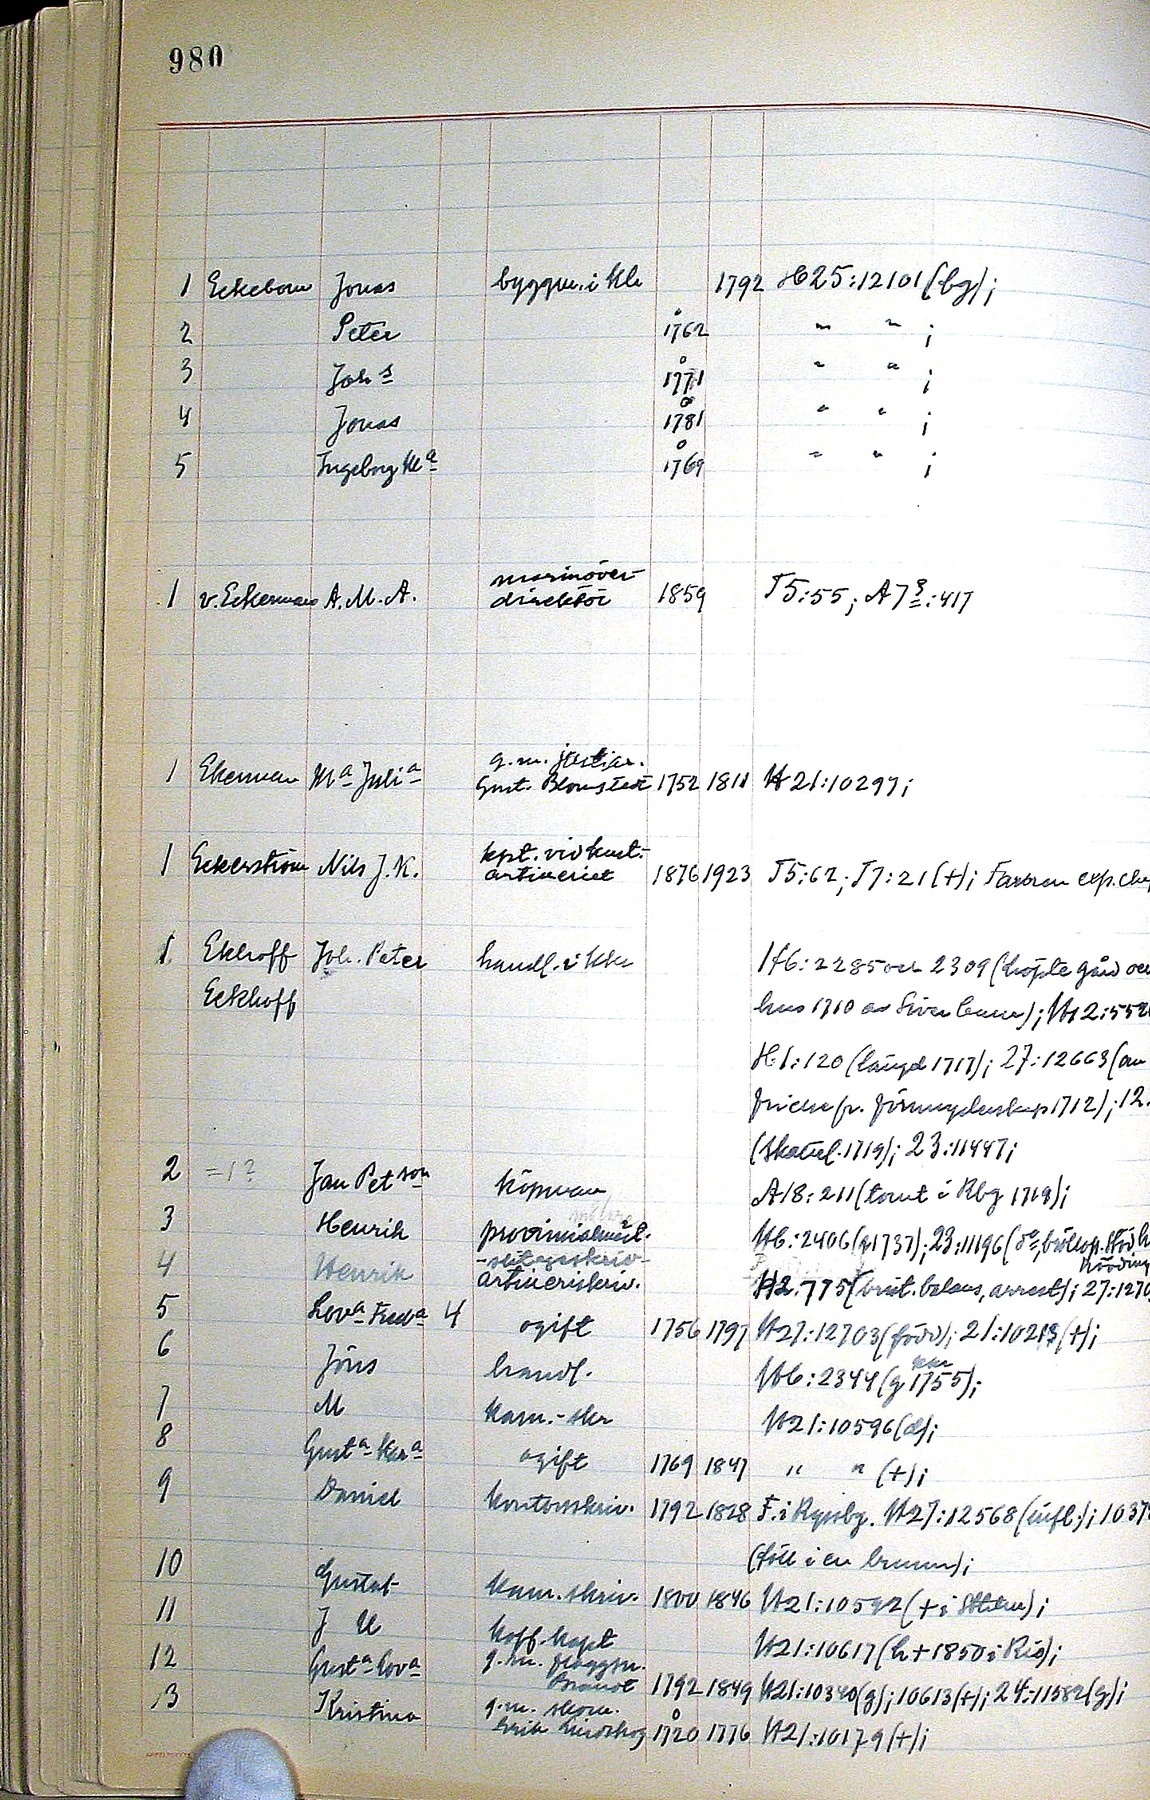 980
1 Eckebom Jonas byggm. i Kla 1792 H25:12101 (bg);
2 Peter 1762 " " ;
3 Joh s 1771 " " ;
4 Jonas 1781 " " ;
5 Ingeborg Ka 1769 " " ;
marinöver-
1 v. Eckerman A. M. A. direktör 1859 T5:55; A7 :417
g. m. justiar.
1 Ekerman Ma Julia Gust. Blomstedt 1752 1811 H21:10297;
kpt. vid kust-
1 Eckerström Nils J. K. artilleriet 1876 1923 T5:62; T7:21 (+); Farbron exp. che
1 Ekhoff Joh. Peter handl. i Kkr H6:2285 och 2309 (köpte gård
Eckhoff hus 1710 av); H2:552
H1:120 (längd 1717); 27:12663 (an
1712); 12.
(1719); 23:11447;
2 =1? Jan Petson köpman A18:211 (tomt i Rbg 1719);
3 Henrik H6:2406 (g 1737); 23:11196 (
4 Henrik artilleriskriv. H2:775 (brist. balans, arrest); 27:1270
5 Lova Freda 4 ogift 1756 1797 H27:12703 (född); 21:10213 (+);
6 Jöns handl. H6:2344 (g 1755);
7 M kam.-skr H21:10596 (d);
8 Gusta Kara ogift 1769 1847 " " (+);
9 Daniel kontorsskriv. 1792 1828 F. i Ryssby. H27:12568 (infl.); 1037
(föll i en brunn);
10 Gustaf kam. skriv. 1800 1846 H21:10592 (+ i Sthlm);
11 J U koff.kapt H21:10617 (h + 1850 i Rio);
12 Gusta Lova g. m. flaggm.
Brandt 1792 1849 H21:10340 (g); 10613 (+); 24:11582 (g);
13 Kristina g. m. skom.
Erik Lindskog 1720 1776 H21:10179 (+);